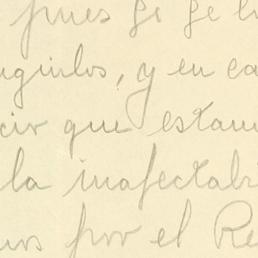 pues
uginlos, y en ca
cir que estam
la inafectabi
mos por el Re